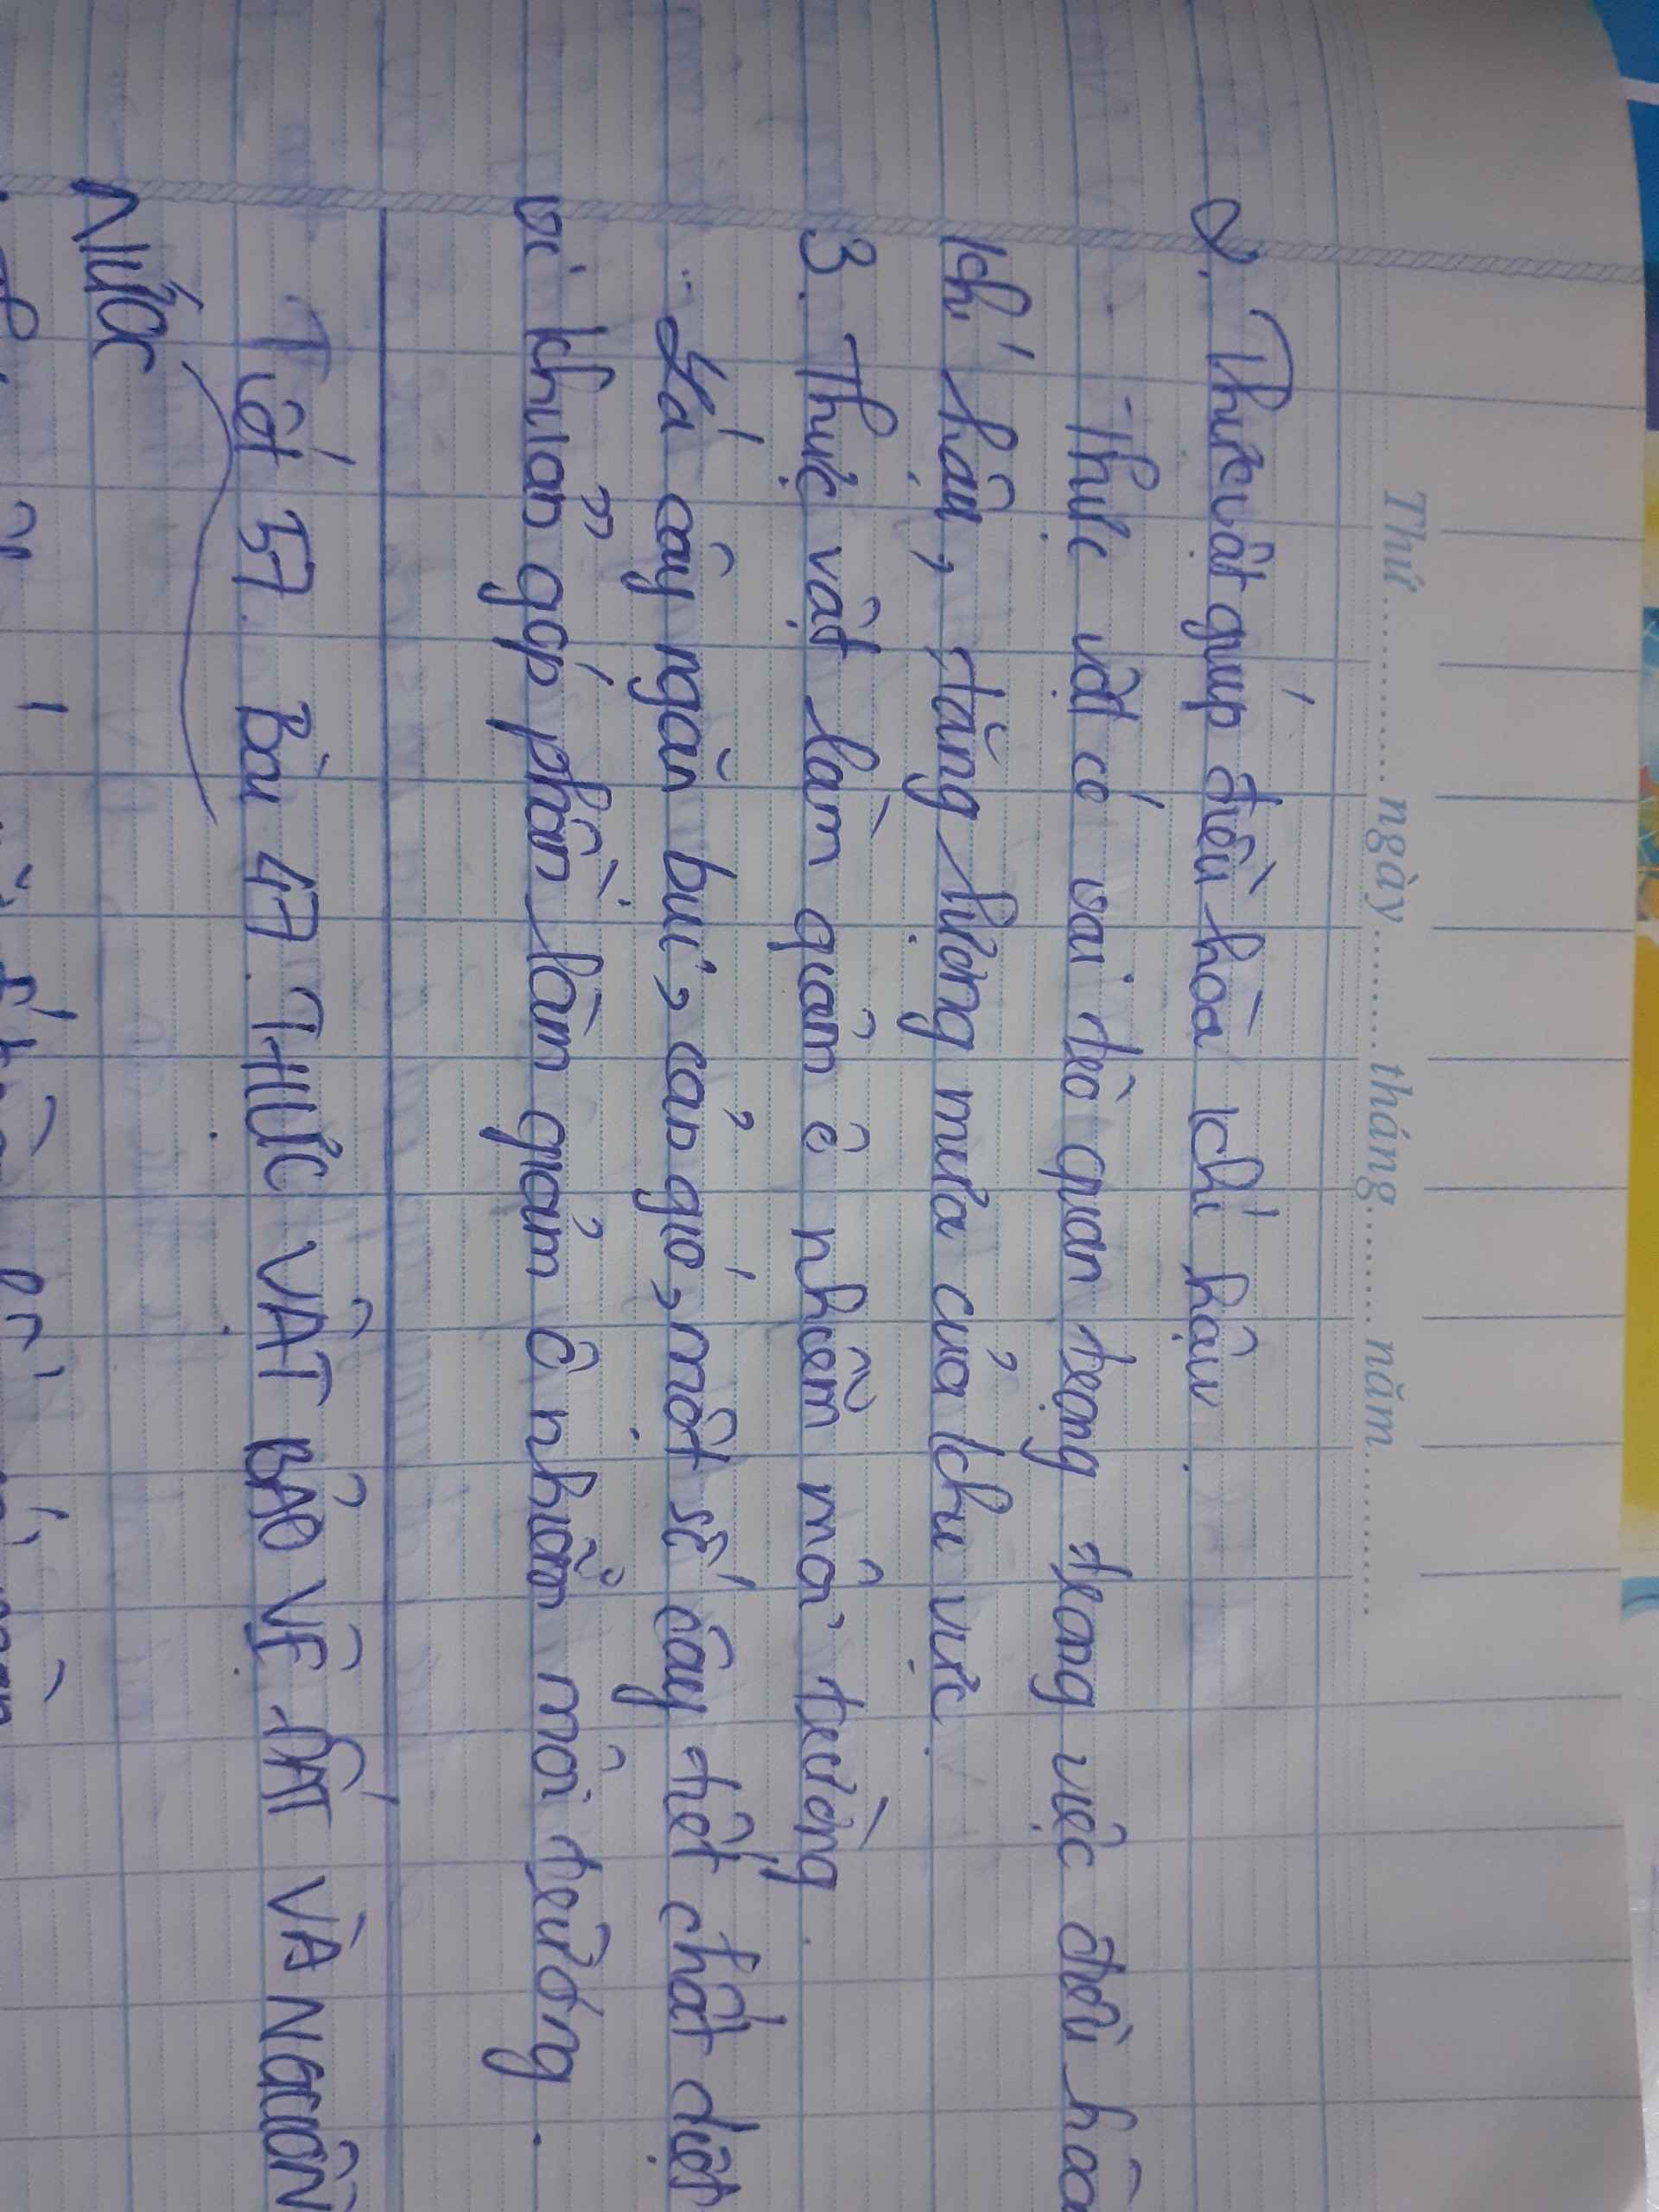 Thứ............ngày..........tháng.........năm.............
2. Thực vật giúp điều hòa khí hậu.
- Thực vật có vai trò quan trọng trong việc điều hòa
khí hậu, tăng lượng mưa của khu vực.
3. Thực vật làm giảm ô nhiễm môi trường.
- Lá cây ngăn bụi, cản gió, một số cây tiết chất diệt
vi khuẩn góp phần làm giảm ô nhiễm môi trường.
Tiết 57. Bài 47. THỰC VẬT BẢO VỆ ĐẤT VÀ NGUỒN
NƯỚC